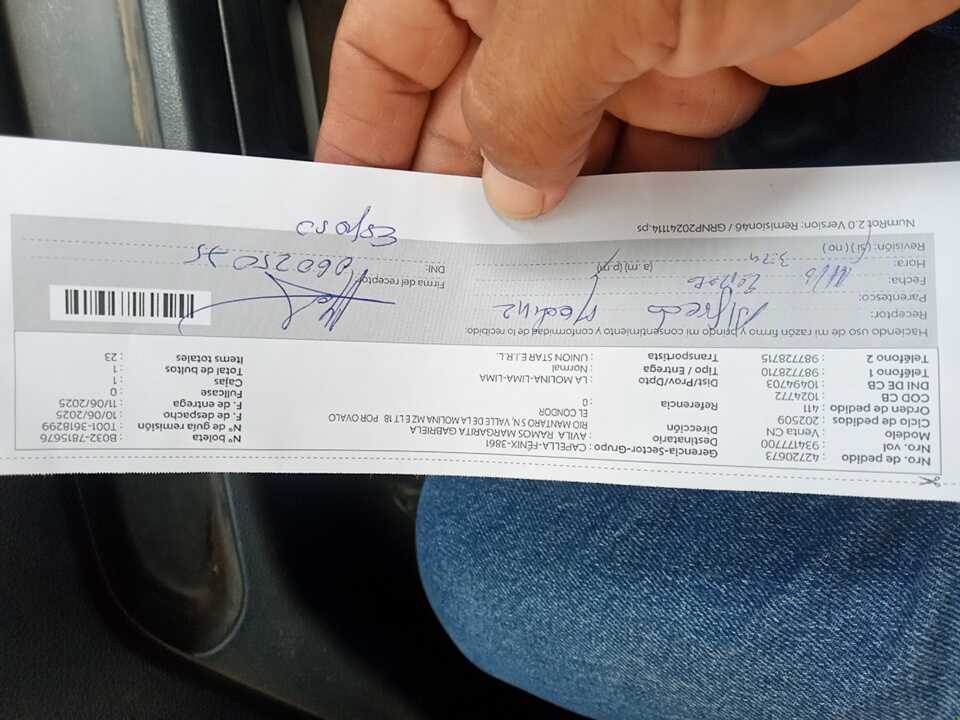 Nro. de pedido : 42720673
Nro. vol : 934177700
Modelo : Venta CN
Ciclo de pedidos : 202509
Orden de pedido : 411
COD CB : 1024772
DNI DE CB : 10494703
Teléfono 1 : 987728710
Teléfono 2 : 987728715
Gerencia-Sector-Grupo : CAPELLA-FÉNIX-3861
Destinatario : AVILA RAMOS MARGARITA GABRIELA
Dirección : RIO MANTARO S N, VALLE DE LA MOLINA MZ E LT 18 POR OVALO
EL CONDOR
Referencia : 0
Dist/Prov/Dpto : LA MOLINA-LIMA-LIMA
Tipo / Entrega : Normal
Transportista : UNION STAR E.I.R.L.
Nº boleta : B032-7815676
Nº de guía remisión : T001-3618299
F. de despacho : 10/06/2025
F. de entrega : 11/06/2025
Fullcase : 0
Cajas : 1
Total de bultos : 1
Items totales : 23
Haciendo uso de mi razón firmo y brindo mi consentimiento y conformidad de lo recibido.
Receptor: Alfredo Medina
Parentesco:
Fecha: 11/6
Hora: 3:24 (a.m) (p.m)
Revisión: (si) (no)
Firma del receptor
DNI: 06025075
Esposo
NumRot 2.0 Version: Remision46 / GRNP20241114.ps